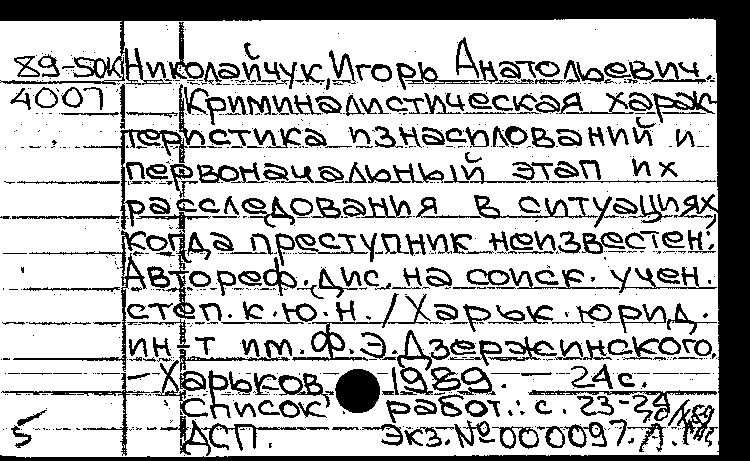 89-50к Николайчук, Игорь Анатольевич.
4007 Криминалистическая харак-
теристика изнасилований и
первоначальный этап их
расследования в ситуациях,
когда преступник неизвестен:
Автореф. дис. на соиск. учен.
степ. к.ю.н. / Харьк. юрид.
ин-т им. Ф.Э. Дзержинского.
- Харьков, 1989. - 24 с.
Список работ.: с. 23-24
5 ДСП. Экз. № 000097.